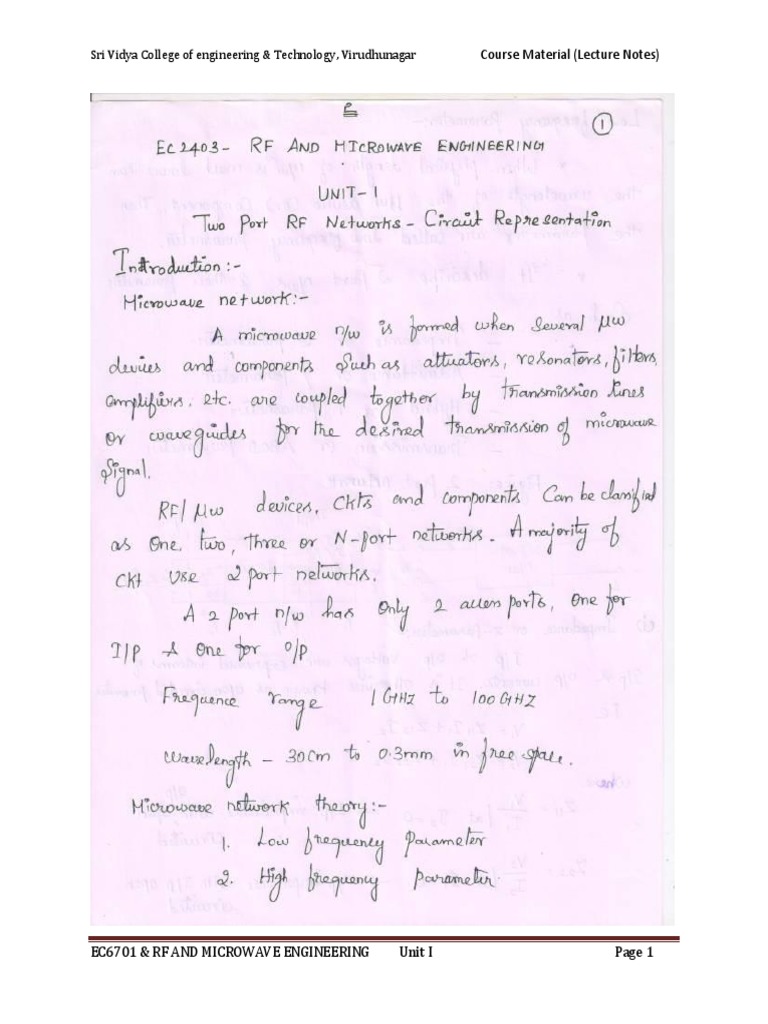 Sri Vidya College of engineering & Technology, Virudhunagar Course Material (Lecture Notes)
1
EC2403- RF AND MICROWAVE ENGINEERING
UNIT-1
Two Port RF Networks - Circuit Representation
Introduction:-
Microwave network:-
A microwave n/w is formed when several μw
devices and components such as attuators, resonators, filters,
amplifiers. etc. are coupled together by transmission lines
or waveguides for the desired transmission of microwave
signal.
RF/μw devices, ckts and components can be classified
as one, two, three or N-port networks. A majority of
ckt use 2 port networks.
A 2 port n/w has only 2 access ports, one for
I/P & one for o/p
Frequence range 1 GHz to 100 GHz
wavelength - 30cm to 0.3mm in free space.
Microwave network theory:-
1. Low frequency parameter
2. High frequency parameter.
EC6701 & RF AND MICROWAVE ENGINEERING Unit I Page 1